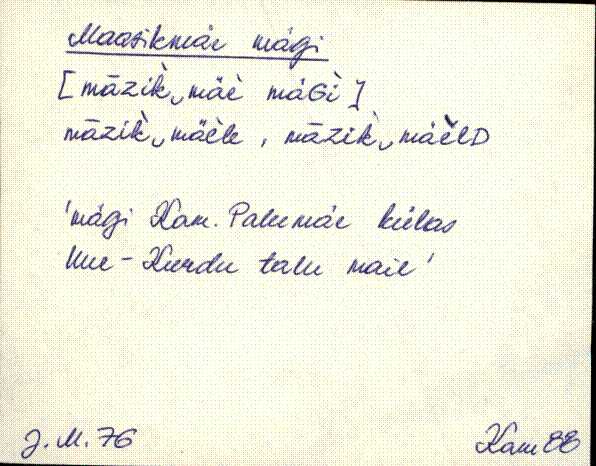 Maasikmäe mägi
[māzik̀‿mäè mäGì]
māzik̀‿mäèle, māzik̀‿mäèlD
'mägi Kam. Palumäe külas
Uue-Kurdu talu maie'
J.M.76
Kam 88